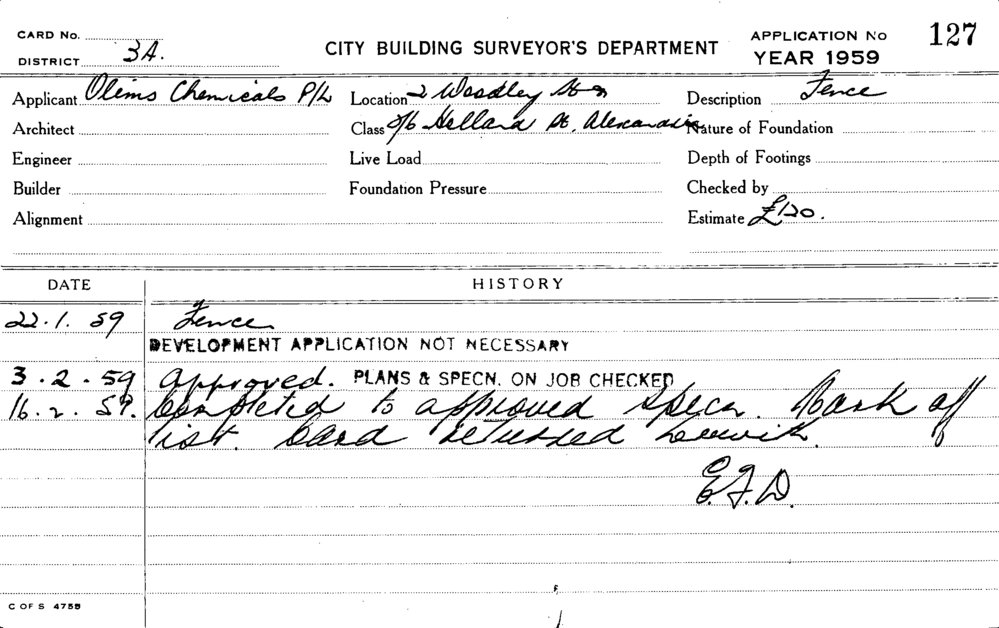 CARD No.
DISTRICT 3A.
CITY BUILDING SURVEYOR'S DEPARTMENT
APPLICATION No 127
YEAR 1959
Applicant Olims Chemicals P/L Location 2 Wandley St Description Fence
Architect Class O/b Holland St, Alexandria Nature of Foundation
Engineer Live Load Depth of Footings
Builder Foundation Pressure Checked by
Alignment Estimate £120.
DATE HISTORY
22.1.59 Fence
DEVELOPMENT APPLICATION NOT NECESSARY
3.2.59 approved. PLANS & SPECN. ON JOB CHECKED
16.2.59. Completed to approved specn. Mark off
list. Card returned herewith.
E.F.D.
C OF S 4755